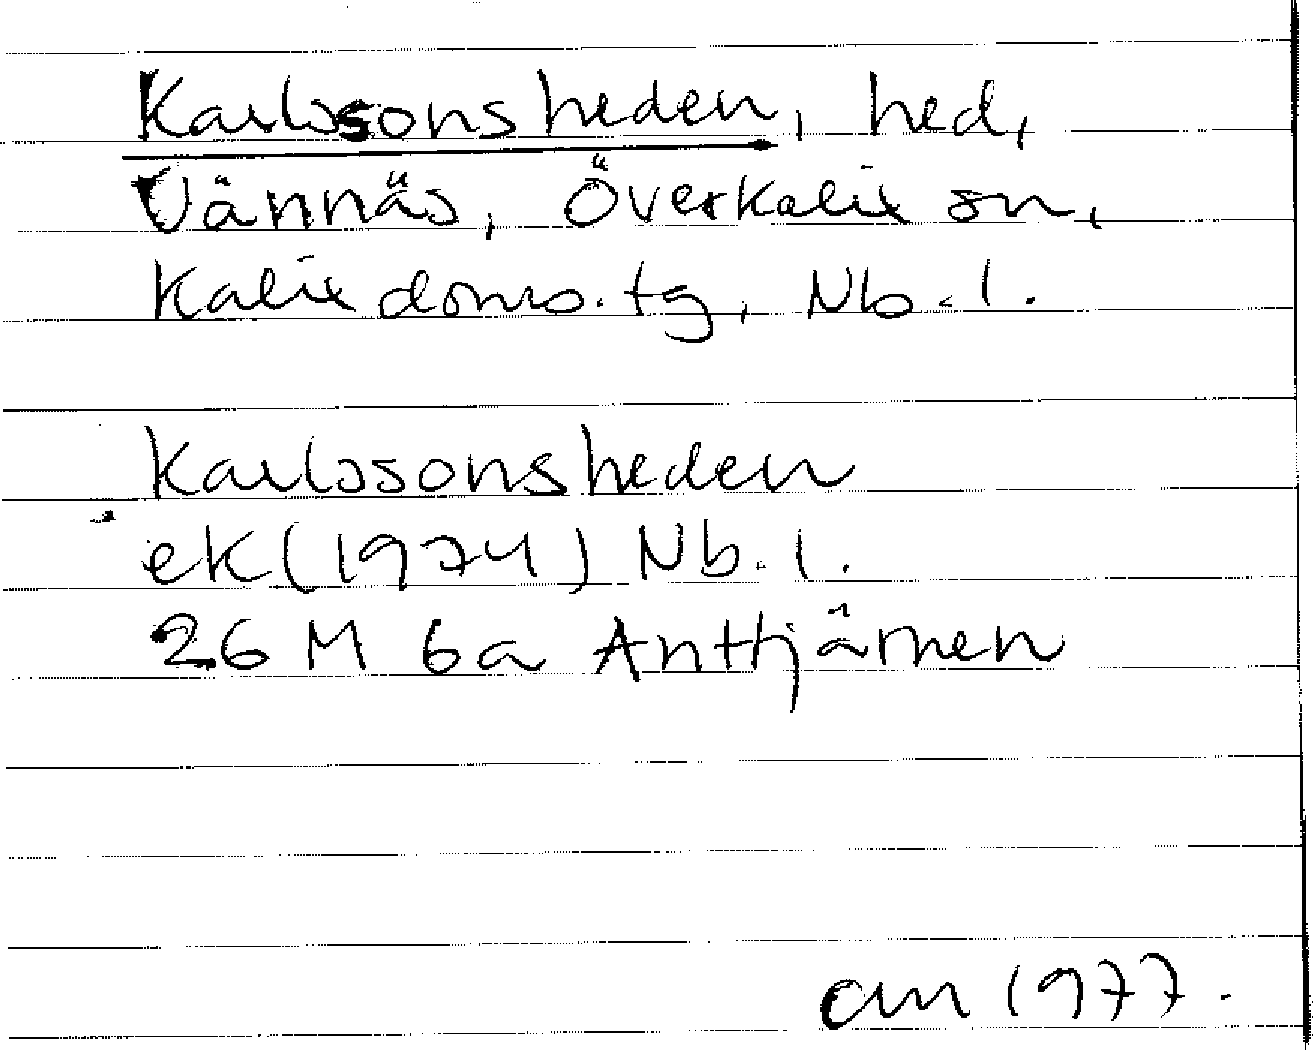 Karlssonsheden, hed,
Vännäs, Överkalix sn,
Kalix doms.tg, Nb.l.
Karlssonsheden
ek (1974) Nb.l.
26 M 6a Anttjärnen
am 1977.